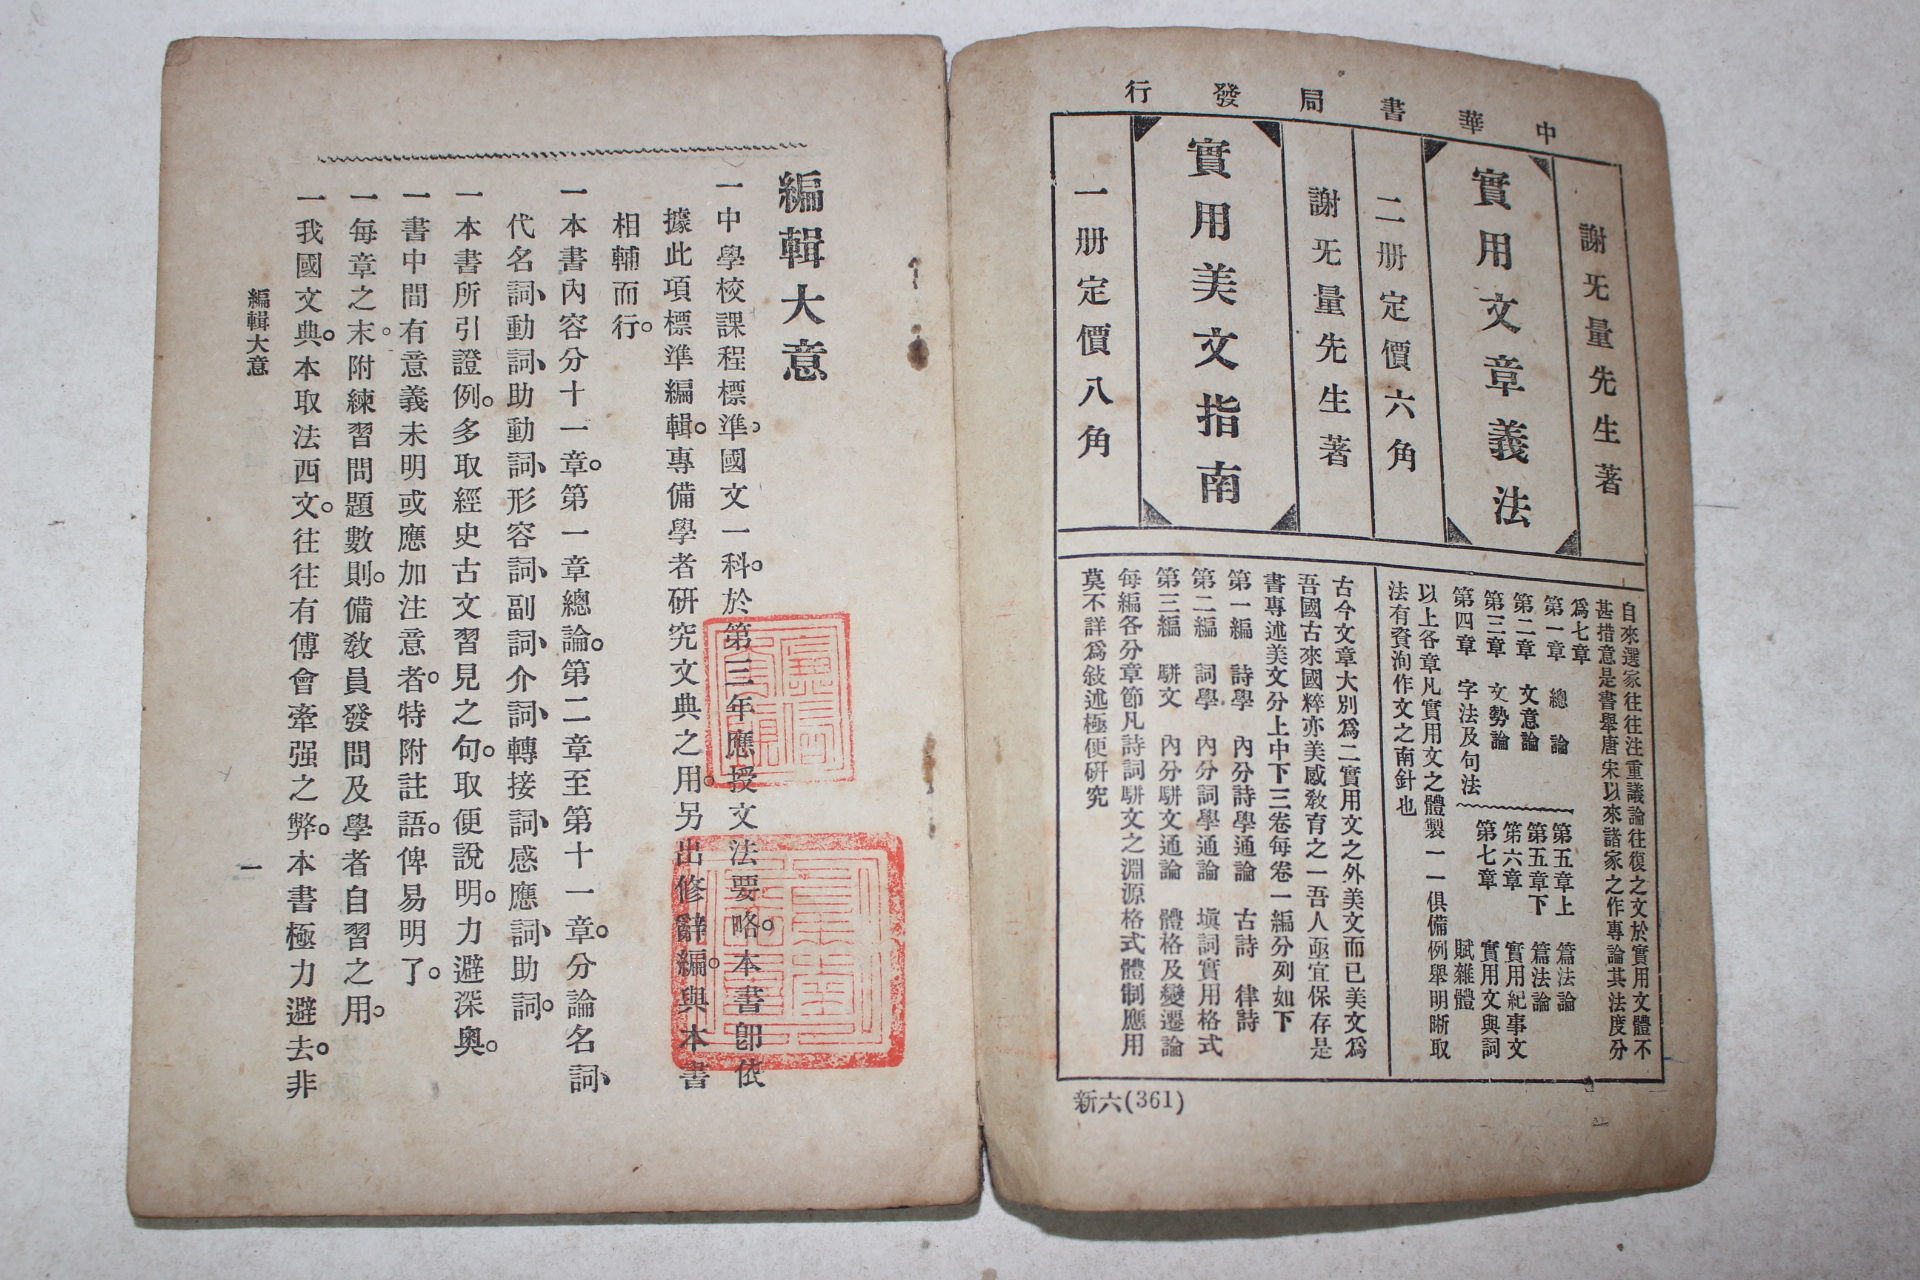 中華書局發行
謝旡量先生著
實用文章義法
二册定價六角
謝旡量先生著
實用美文指南
一册定價八角
自來選家往往注重議論往復之文於實用文體不
甚措意是書舉唐宋以來諸家之作專論其法度分
爲七章
第一章　總論
第二章　文意論
第三章　文勢論
第四章　字法及句法
第五章上　篇法論
第五章下　篇法論
第六章　實用紀事文
第七章　實用文與詞
賦雜體
以上各章凡實用文之體製一一俱備例舉明晰取
法有資洵作文之南針也
古今文章大別爲二實用文之外美文而已美文爲
吾國古來國粹亦美感敎育之一吾人亟宜保存是
書專述美文分上中下三卷每卷一編分列如下
第一編　詩學　內分詩學通論　古詩　律詩
第二編　詞學　內分詞學通論　塡詞實用格式
第三編　駢文　內分駢文通論　體格及變遷論
每編各分章節凡詩詞駢文之淵源格式體制應用
莫不詳爲敍述極便硏究
新六(361)
編輯大意
一中學校課程標準。國文一科。於第三年應授文法要略。本書卽依
據此項標準編輯。專備學者硏究文典之用。另出修辭編。與本書
相輔而行。
一本書內容分十一章。第一章總論。第二章至第十一章。分論名詞、
代名詞、動詞、助動詞、形容詞、副詞、介詞、轉接詞、感應詞、助詞。
一本書所引證例。多取經史古文習見之句。取便說明。力避深奧。
一書中間有意義未明或應加注意者。特附註語。俾易明了。
一每章之末。附練習問題數則。備敎員發問及學者自習之用。
一我國文典。本取法西文。往往有傅會牽强之弊。本書極力避去。非
編輯大意
一